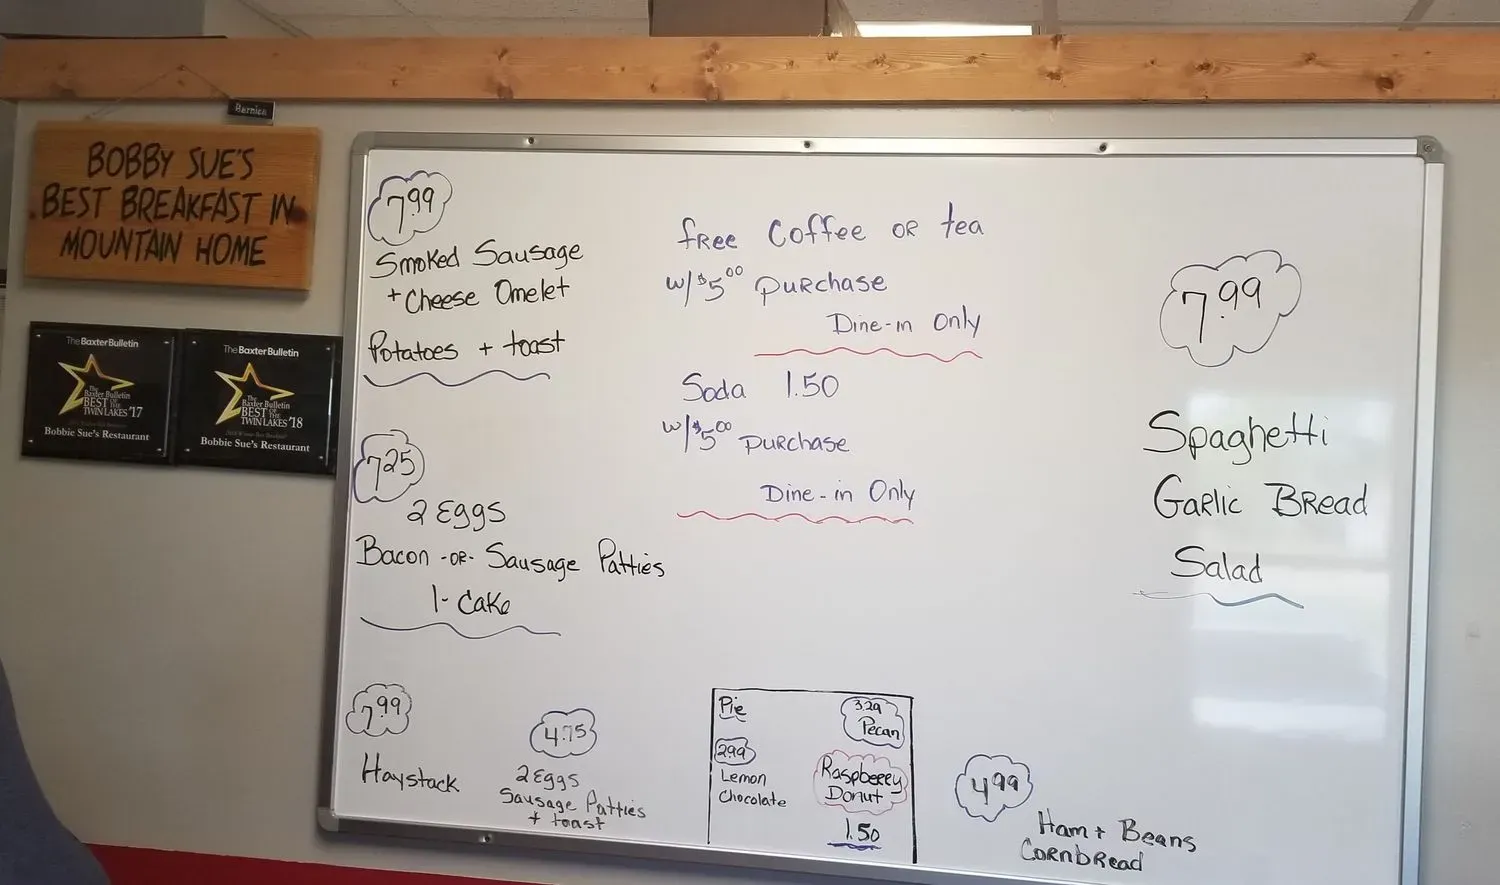 Bernice
BOBBY SUE'S
BEST BREAKFAST IN
MOUNTAIN HOME
The Baxter Bulletin
The
Baxter Bulletin
BEST OF THE
TWIN LAKES '17
Bobbie Sue's Restaurant
The Baxter Bulletin
The
Baxter Bulletin
BEST OF THE
TWIN LAKES '18
Bobbie Sue's Restaurant
7.99
Smoked Sausage
+ Cheese Omelet
Potatoes + toast
7.25
2 Eggs
Bacon -OR- Sausage Patties
1- Cake
7.99
Haystack
4.75
2 Eggs
Sausage Patties
+ toast
free Coffee OR tea
w/$5.00 purchase
Dine-in Only
Soda 1.50
w/$5.00 purchase
Dine-in Only
Pie
2.99
Lemon
Chocolate
3.29
Pecan
Raspberry
Donut
1.50
7.99
Spaghetti
Garlic Bread
Salad
4.99
Ham + Beans
Cornbread